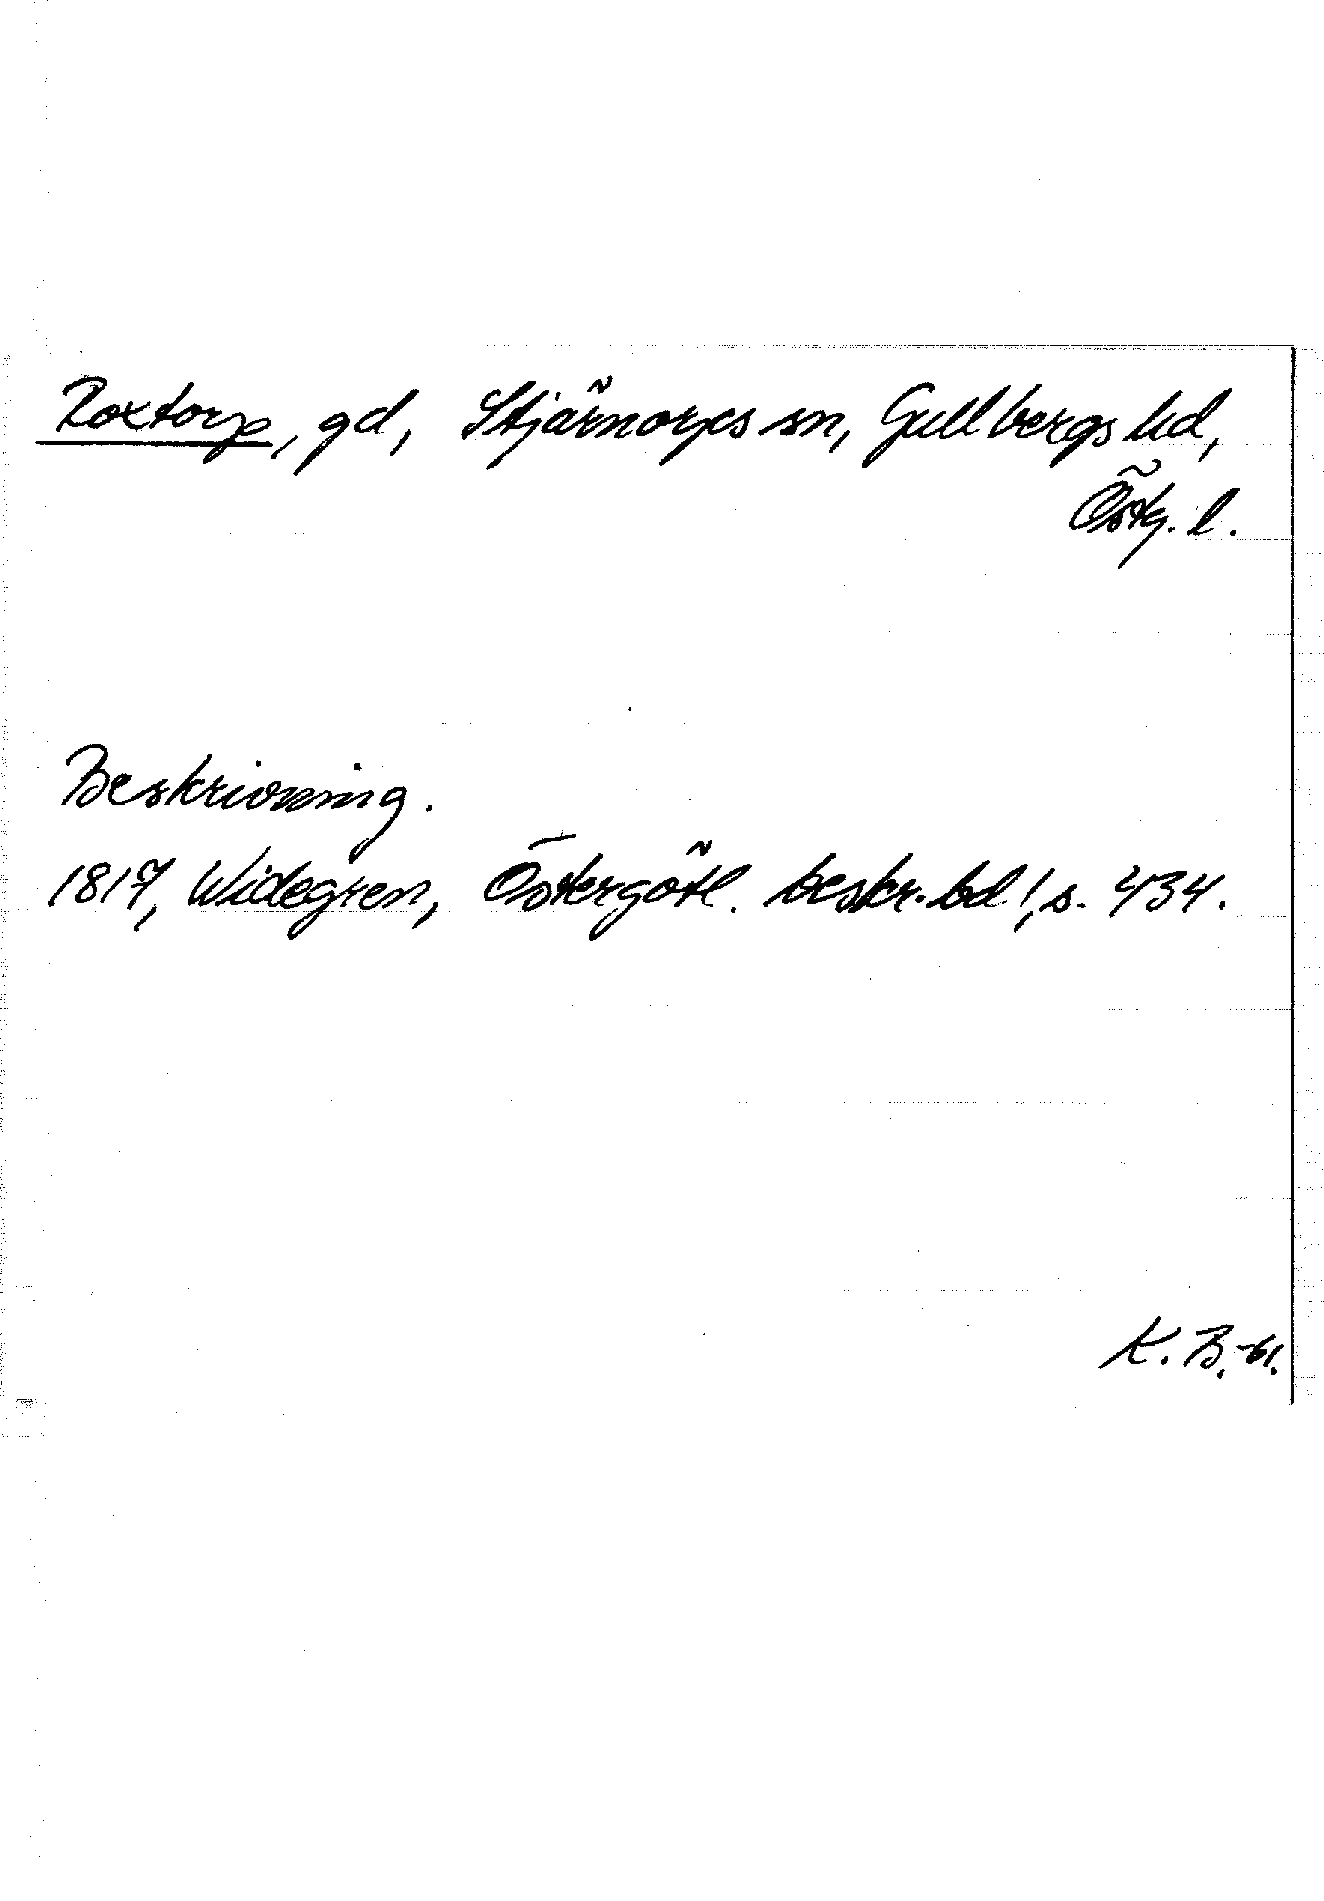 Roxtorp, gd, Stjärnorps sn, Gullbergs hd,
Östg. l.
Beskrivning.
1817, Widegren, Östergötl. beskr. bd 1, s. 434.
K. B. -61.